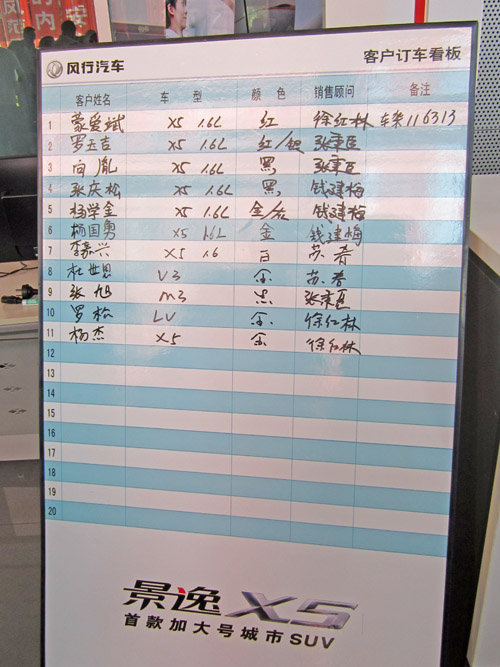 风行汽车 客户订车看板
客户姓名 车 型 颜 色 销售顾问 备注
1 蒙爱斌 X5 1.6L 红 徐红林 车架116313
2 罗玉吉 X5 1.6L 红/银 张秉臣
3 向胤 X5 1.6L 黑 张秉臣
4 张庆松 X5 1.6L 黑 钱建梅
5 杨学金 X5 1.6L 金/灰 钱建梅
6 杨国勇 X5 1.6L 金 钱建梅
7 李嘉兴 X5 1.6 白 苏希
8 杜世恩 V3 金 苏希
9 张旭 M3 黑 张秉臣
10 罗松 LV 金 徐红林
11 杨杰 X5 金 徐红林
12
13
14
15
16
17
18
19
20
景逸 X5
首款加大号城市SUV